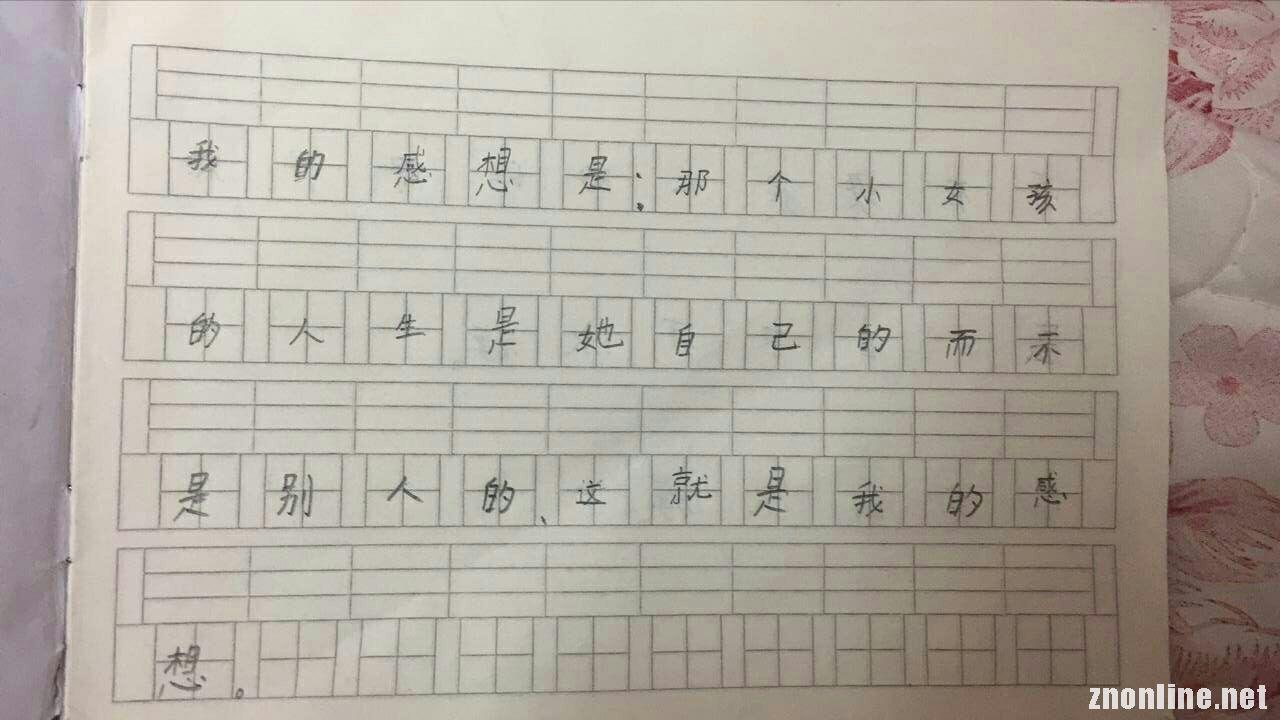 我的感想是：那个小女孩
的人生是她自己的而不
是别人的、这就是我的感
想。
znonline.net